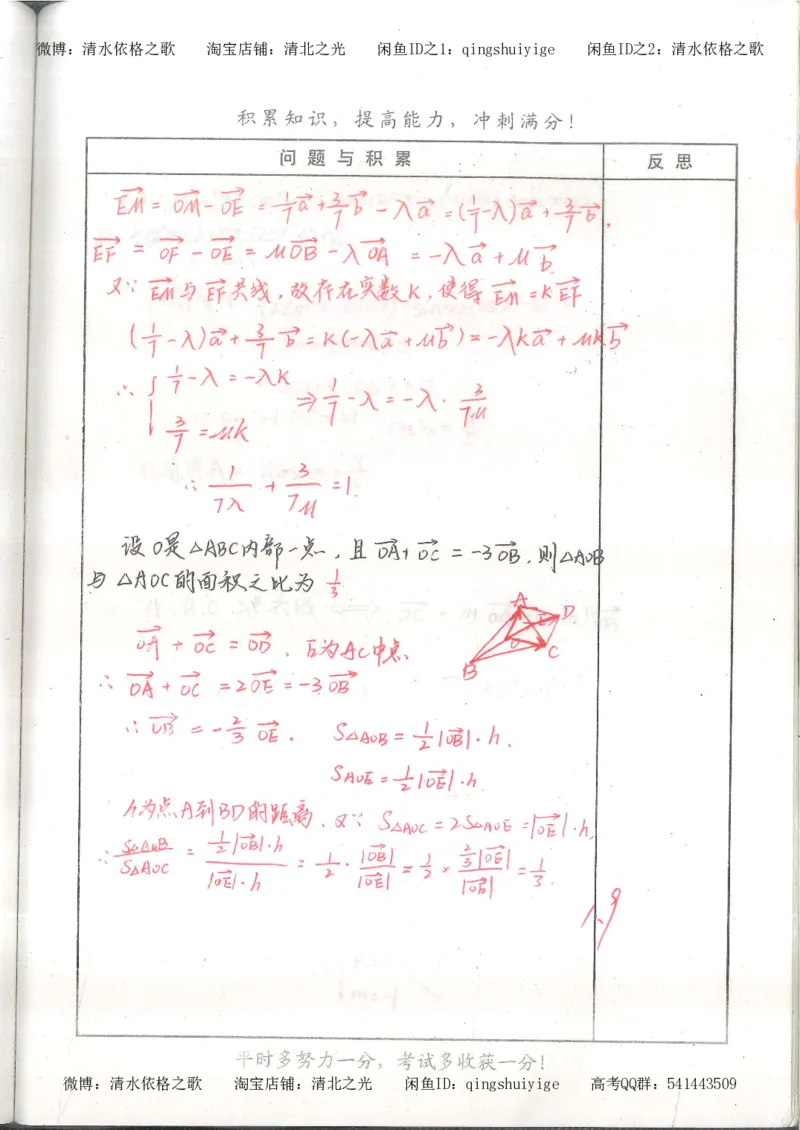 微博：清水依格之歌 淘宝店铺：清北之光 闲鱼ID之1：qingshuiyige 闲鱼ID之2：清水依格之歌
积累知识，提高能力，冲刺满分！
问题与积累 反思
→EM = →OM - →OE = 1/7 →a + 3/7 →b - λ→a = (1/7 - λ)→a + 3/7 →b.
→EF = →OF - →OE = μ→OB - λ→OA = -λ→a + μ→b.
又∵ →EM与→EF共线，故存在实数K，使得 →EM = K→EF
(1/7 - λ)→a + 3/7 →b = K(-λ→a + μ→b) = -λK→a + μK→b
∴ { 1/7 - λ = -λK
3/7 = μK
⇒ 1/7 - λ = -λ · 3/7μ
∴ 1/7λ + 3/7μ = 1.
设O是△ABC内部一点，且 →OA + →OC = -3→OB，则△AOB
与△AOC的面积之比为 1/3
A
D
E
O
C
B
→OA + →OC = →OD，E为AC中点、
∴ →OA + →OC = 2→OE = -3→OB
∴ →OB = -2/3 →OE. S△AOB = 1/2|→OB|·h.
SAOE = 1/2|→OE|·h
h为点A到BD的距离. 又∵ S△AOC = 2S△AOE = |→OE|·h,
∴ S△AOB/S△AOC = 1/2|→OB|·h / |→OE|·h = 1/2 · |→OB|/|→OE| = 1/2 × 2/3|→OE|/|→OE| = 1/3.
1.9
平时多努力一分，考试多收获一分！
微博：清水依格之歌 淘宝店铺：清北之光 闲鱼ID：qingshuiyige 高考QQ群：541443509